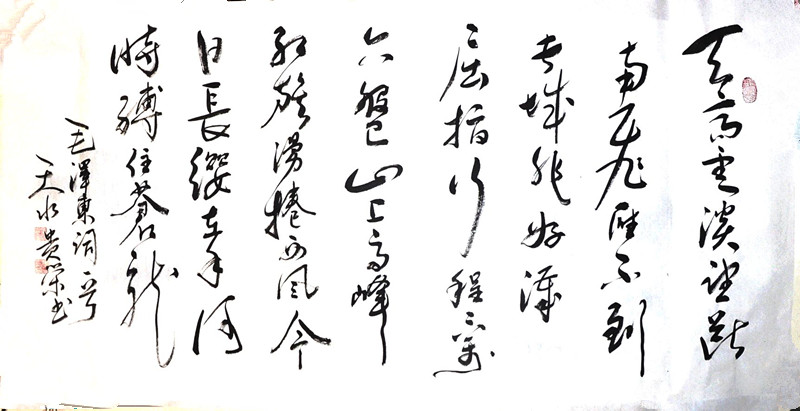 天高雲淡望断
南飛雁不到
長城非好漢
屈指行程二萬
六盤山上高峰
紅旗漫捲西風今
日長纓在手何
時縛住蒼龍
毛澤東詞一首
天水貴榮书